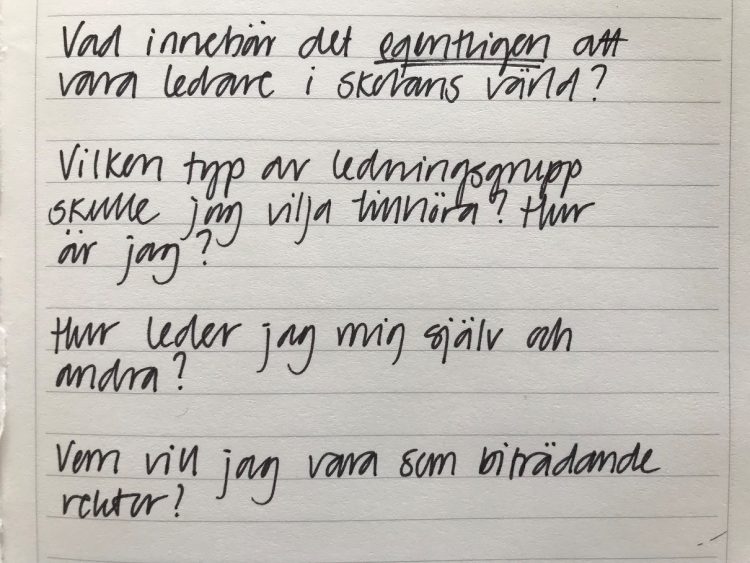 Vad innebär det egentligen att
vara ledare i skolans värld?
Vilken typ av ledningsgrupp
skulle jag vilja tillhöra? Hur
är jag?
Hur leder jag mig själv och
andra?
Vem vill jag vara som biträdande
rektor?